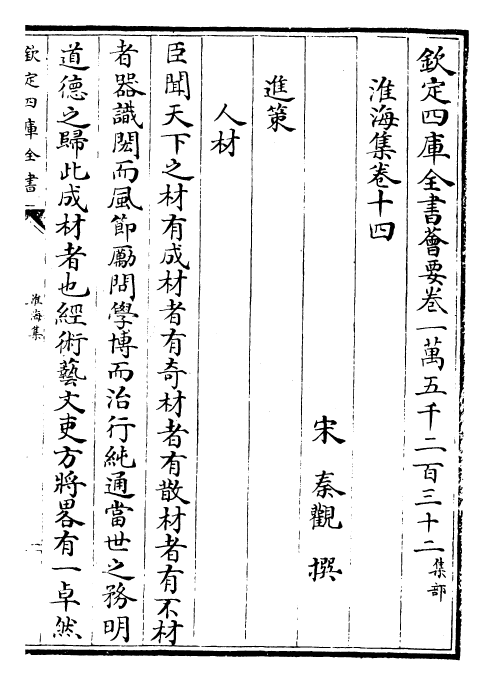 欽定四庫全書薈要卷一萬五千二百三十二集部
淮海集卷十四
宋 秦觀 撰
進策
人材
臣聞天下之材有成材者有奇材者有散材者有不材
者器識閎而風節勵問學博而治行純通當世之務明
道德之歸此成材者也經術藝文吏方將畧有一卓然
欽定四庫全書
淮海集
一